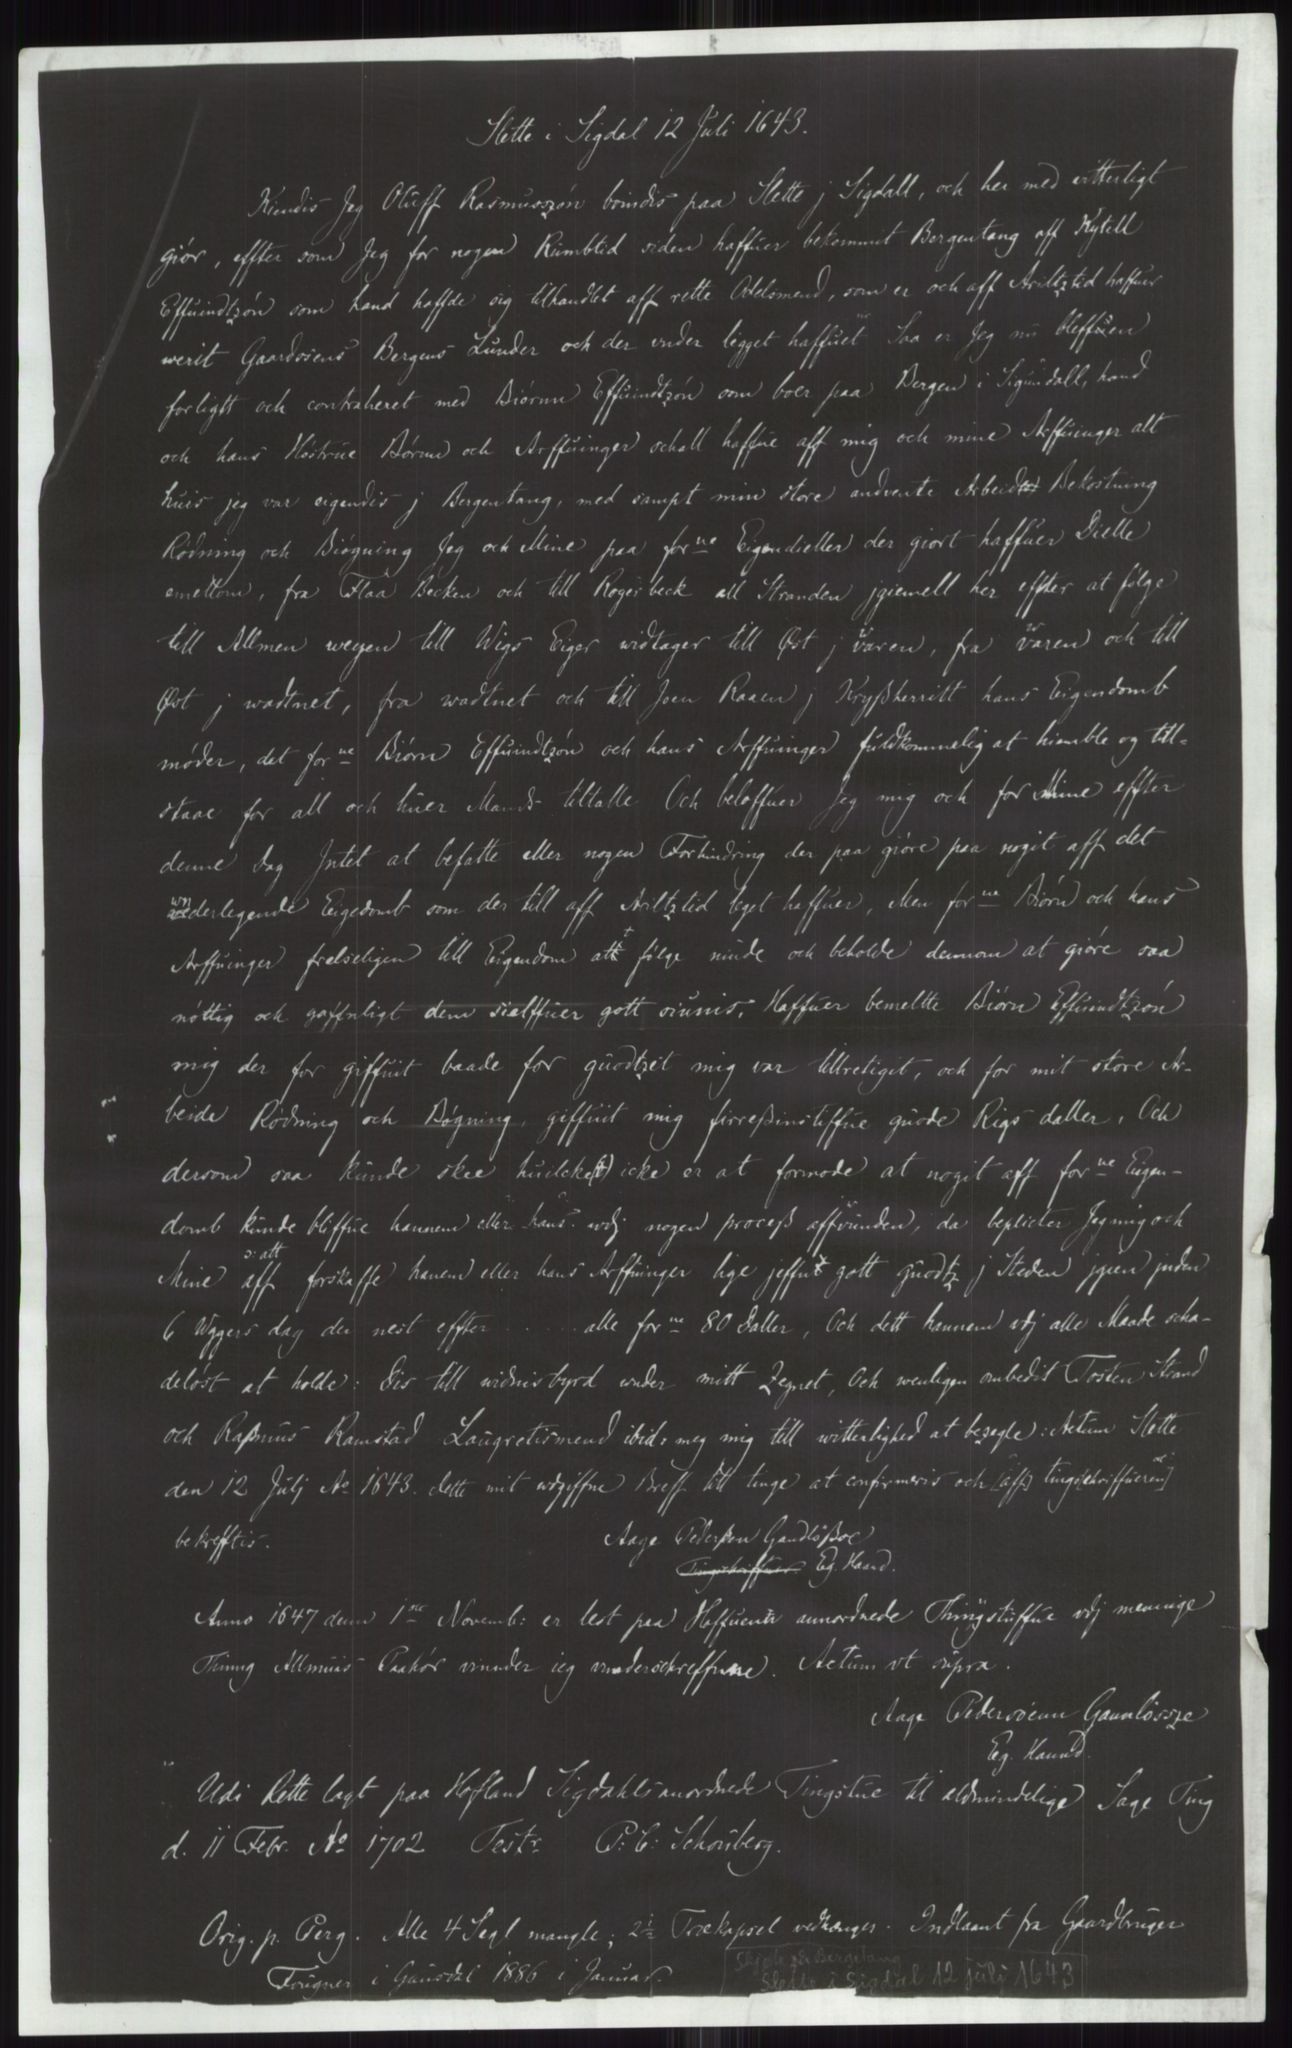 Slette i Sigdal 12 Juli 1643.
Kiendis Jeg Oluff Rasmusszøn boindis paa Slette j Sigdall, och her med witterligt
giör, effter som Jeg for nogen Rumbtid siden haffuer bekommit Bergentang aff Kytell
Effuindtzøn som hand haffde sig tilhandlet aff rette Odelsmend, som er och aff Ariltztid haffuer
werit Gaardosens Bergens Lunder och der vnder ligget haffuet Saa er Jeg nu bleffuen
forligtt och contraheret med Biörnn Effuindtzön som boer paa Bergen i Sigundall, hand
och hans Höstrue Börnn och Arffuinger schall haffue aff mig och mine Arffuinger alt
huis jeg var eigendis j Bergentang, med sampt min store andvente Arbeid Bekostning
Rödning och Biögning Jeg och Mine paa forne Eigendieller der giort haffuer Dielle
emellom, fra Flaa Becken och till Rogerbeck all Stranden jgiemell her effter at fölge
till Allmen weyen till Wigs Eiger widtager till Øst j varen, fra varen och till
Øst j wadtnet, fra wadtnet och till Joen Raaen j Krÿßherritt hans Eigendomb
möder, det forne Biörn Effuindtzön och hans Arffuinger fuldkommelig at hiemble og till-
staae for all och huer Mands tiltalle Och beloffuer Jeg mig och for Mine effter
denne dag Jntet at befatte eller nogen Forhindring der paa giöre paa nogit aff det
wnderlegende Eigedomb som der till aff Ariltztid leget haffuer, Men forne Biörn och hans
Arffuinger frelseligen till Eigendom att fölge niude och beholde dennom at giöre saa
nöttig och gaffnligt dem sielffuer gott siunis, Haffuer bemeltte Biörn Effuindtzön
mig der for giffuit baade for guodtzet mig var tilretigit, och for mit store Ar-
beide Rödning och Bögning, giffuit mig firreßinstiffue guode Rigs daller, Och
dersom saa kunde skee huilcke(t) icke er at formode at nogit aff forne Eigen-
domb kunde bliffue hannem eller hans wdj nogen proceß affvunden, da beplicter Jeg mig och
Mine ɔ: att aff forskaffe hanem eller hans Arffuinger lige jeffnt gott guodtz j Steden jgien inden
6 Wggers dag der nest effter . . . . . alle forne 80 daller, Och dett hannem vdj alle Maade scha-
delöst at holde: Dis till widnisbyrd under mitt Zegnet, Och wenligen ombedit Tosten Strand
och Raßmus Ramstad Laugretismend ibid: meg mig till witterlighed at bezegle: Actum Slette
den 12 Julj Ao 1643. dette mit wdgiffne Breff till tinge at confirmeris och [aff] tingschriffueren
bekrefftis.
Aage Pederßen Gandlößoe
Tingskriffuer Eg. Haand.
Anno 1647 denn 1ste Novemb: er lest paa Haffuenn annordnede Thingstuffue vdj meninge
Thinng Allmuis Paahör vinnder ieg vnnderschreffne. Actum vt supra.
Aage Pedersöenn Gaunlössze
Eg. Haannd.
Udi Rette lagt paa Hofland Sigdahls anordnede Tingstue til aldmindelige Sage Ting
d. 11 Febr. Ao 1702 Testr P: C: Schouberg.
Orig. p. Perg. Alle 4 Segl mangle; 2 Trækapsel vedhænger. Indlaant fra Gaardbruger
Fougner i Gausdal 1886 i Januar.
Skjøte på Bergetang
Slette i Sigdal 12 july 1643